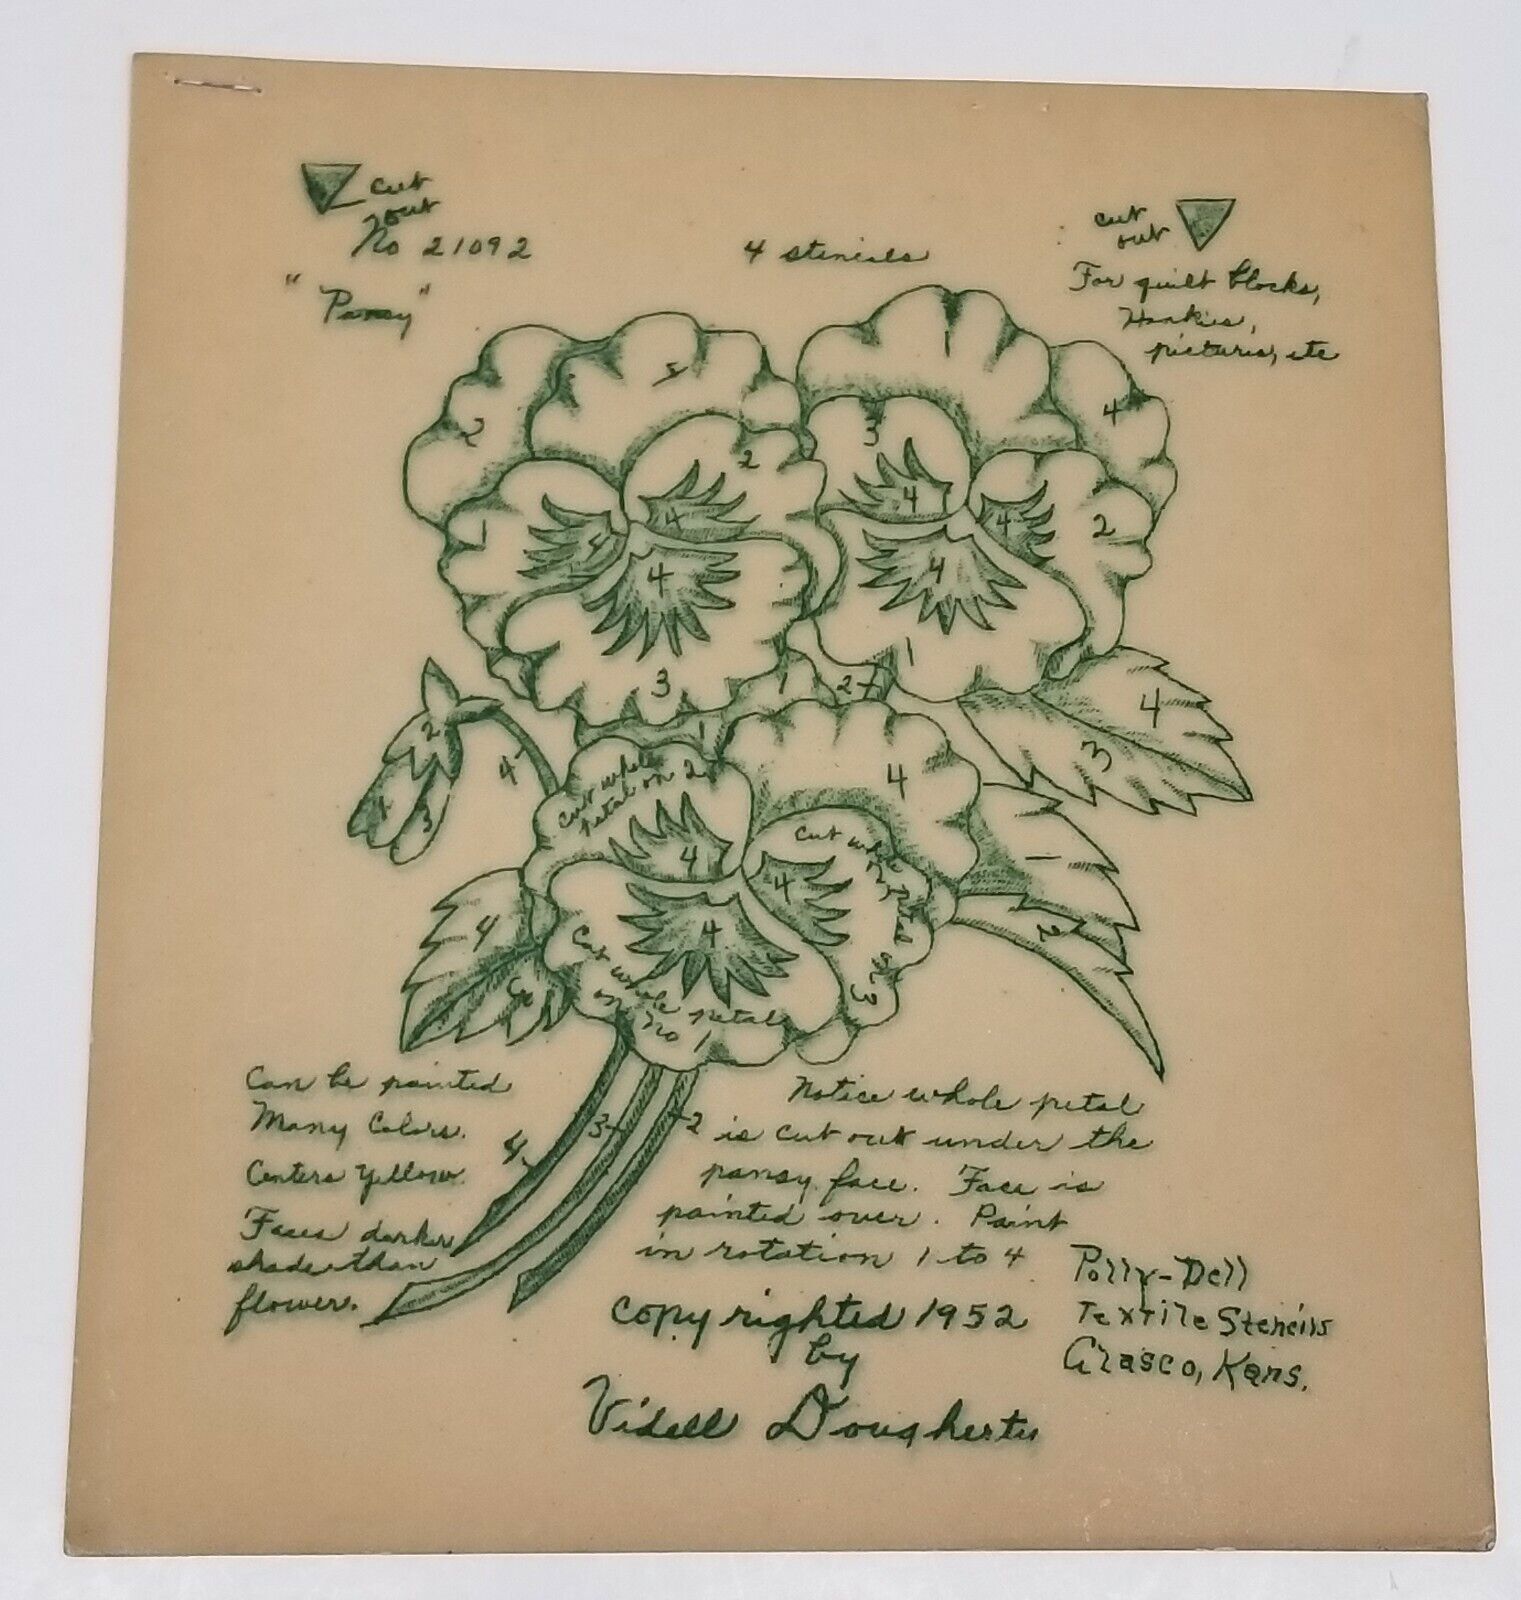 cut
out
No 21092
"Pansy"
4 stencils
cut
out
For quilt blocks,
Hankies,
pictures, etc
2
5
1
4
2
3
1
4
4
4
4
4
2
4
3
1
1
2
1
4
3
2
4
1
3
cut whole
petal on 2
4
cut whole
petal
3
4
4
4
1
2
4
3
cut whole petal
on No 1
Can be painted
Many Colors.
Centers Yellow.
Faces darker
shade than
flower.
4
3
2
Notice whole petal
is cut out under the
pansy face. Face is
painted over. Paint
in rotation 1 to 4
copyrighted 1952
by
Videll Dougherty
Polly-Dell
Textile Stencils
Glasco, Kans.